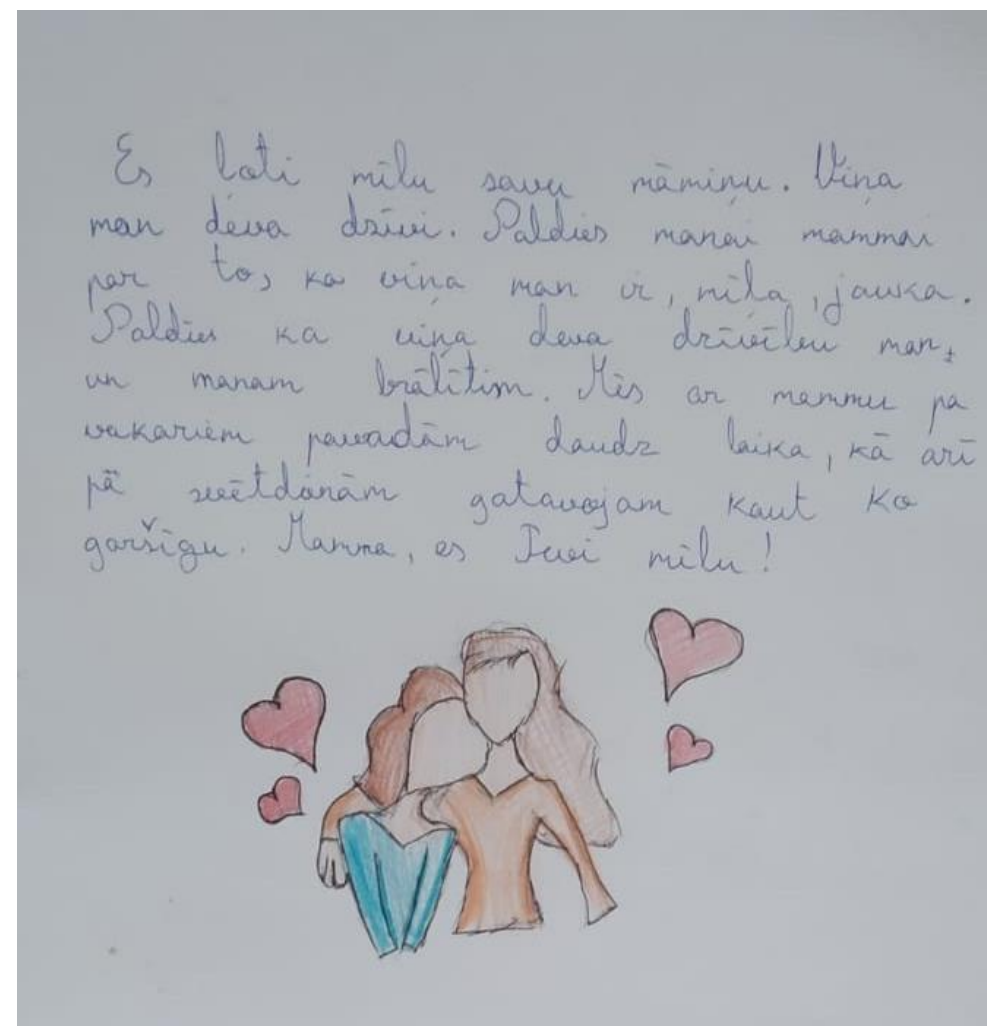 Es loti mīlu savu māmiņu. Viņa
man deva dzīvi. Paldies manai mammai
par to, ka viņa man ir, mīļa, jauka.
Paldies ka viņa deva dzīvību man,
un manam brālītim. Mēs ar mammu pa
vakariem pavadām daudz laika, kā arī
pā svētdānām gatavojam kaut ko
garšīgu. Mamma, es Tevi mīlu!